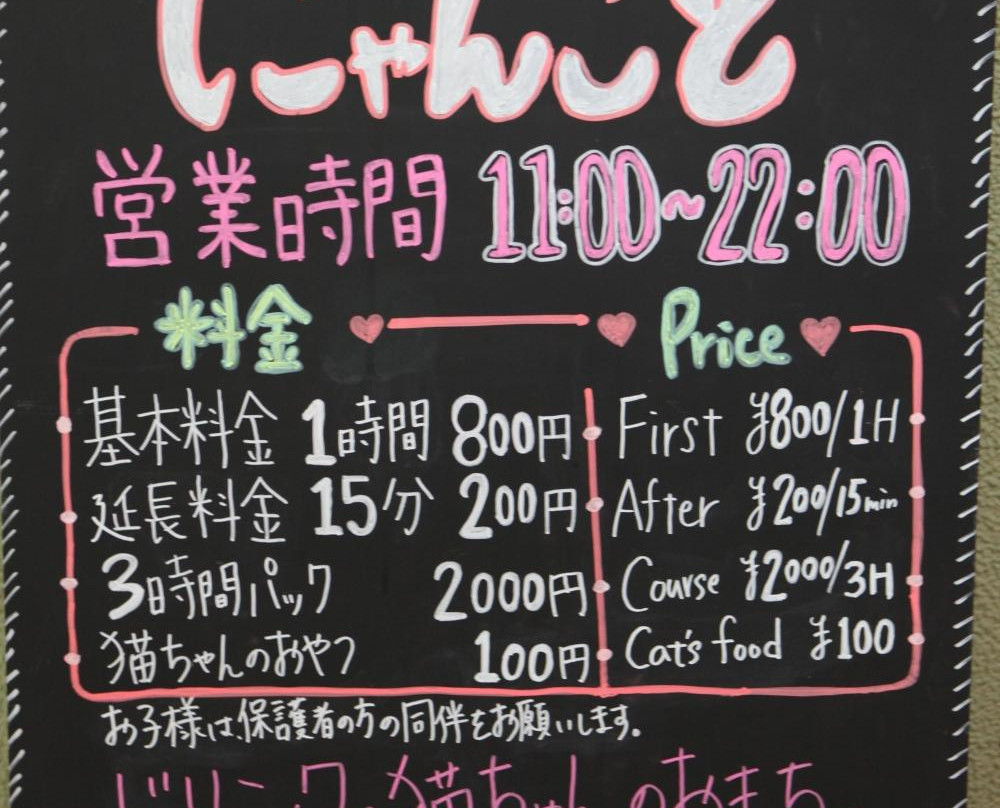 にゃんこと
営業時間 11:00~22:00
料金 Price
基本料金 1時間 800円 First ¥800/1H
延長料金 15分 200円 After ¥200/15min
3時間パック 2000円 Course ¥2000/3H
猫ちゃんのおやつ 100円 Cat's food ¥100
お子様は、保護者の方の同伴をお願いします。
ドリンク、猫ちゃんのおもち